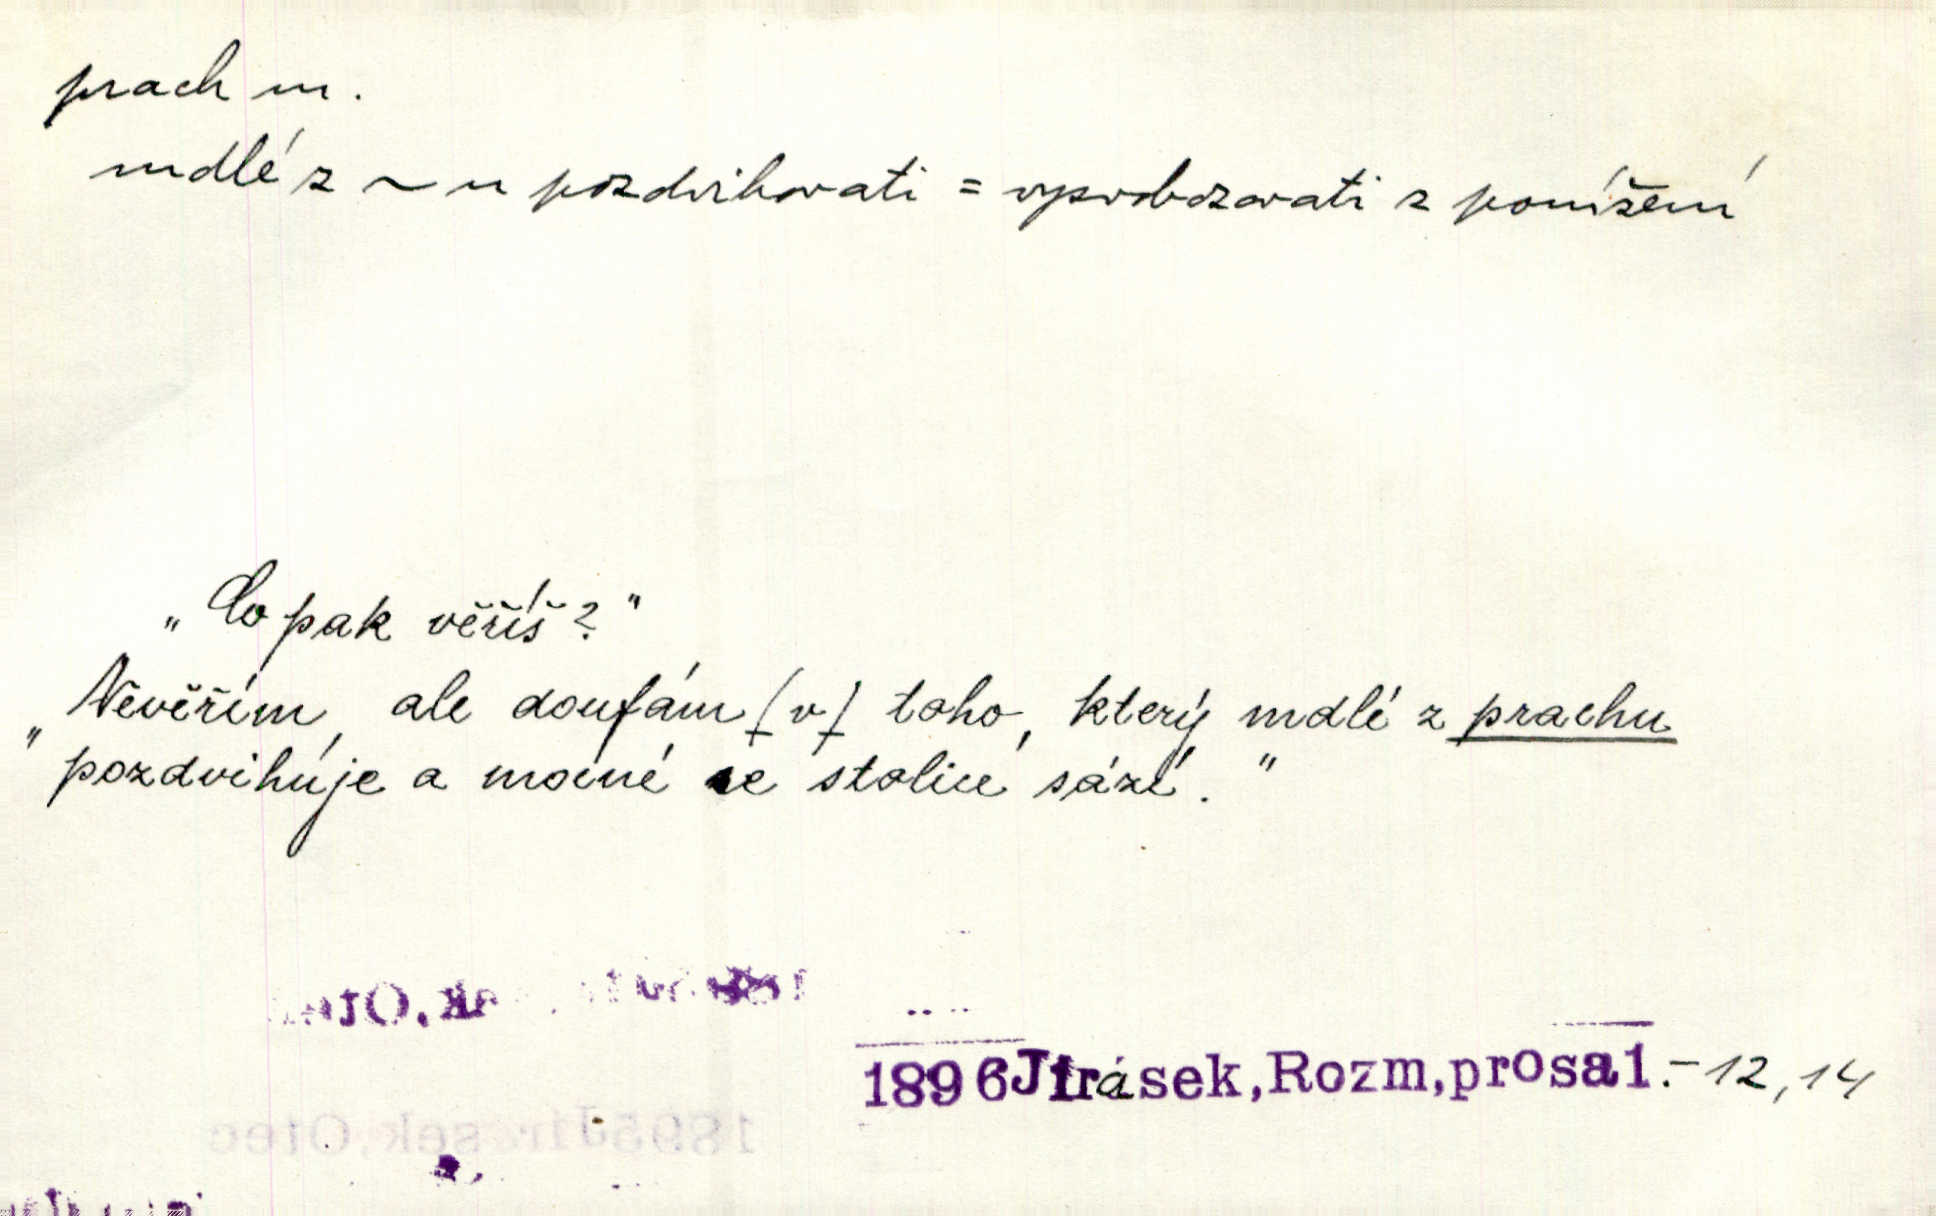 prach m.
mdlé z ~u pozdvihovati = vyprobozovati z ponížení
„Co pak věříš?"
„Nevěřím, ale doufám (v) toho, který mdlé z prachu
pozdvihuje a mocné se stolice sází."
1896Jirásek,Rozm,prosa1.-12,14
1895Jirásek,Otec